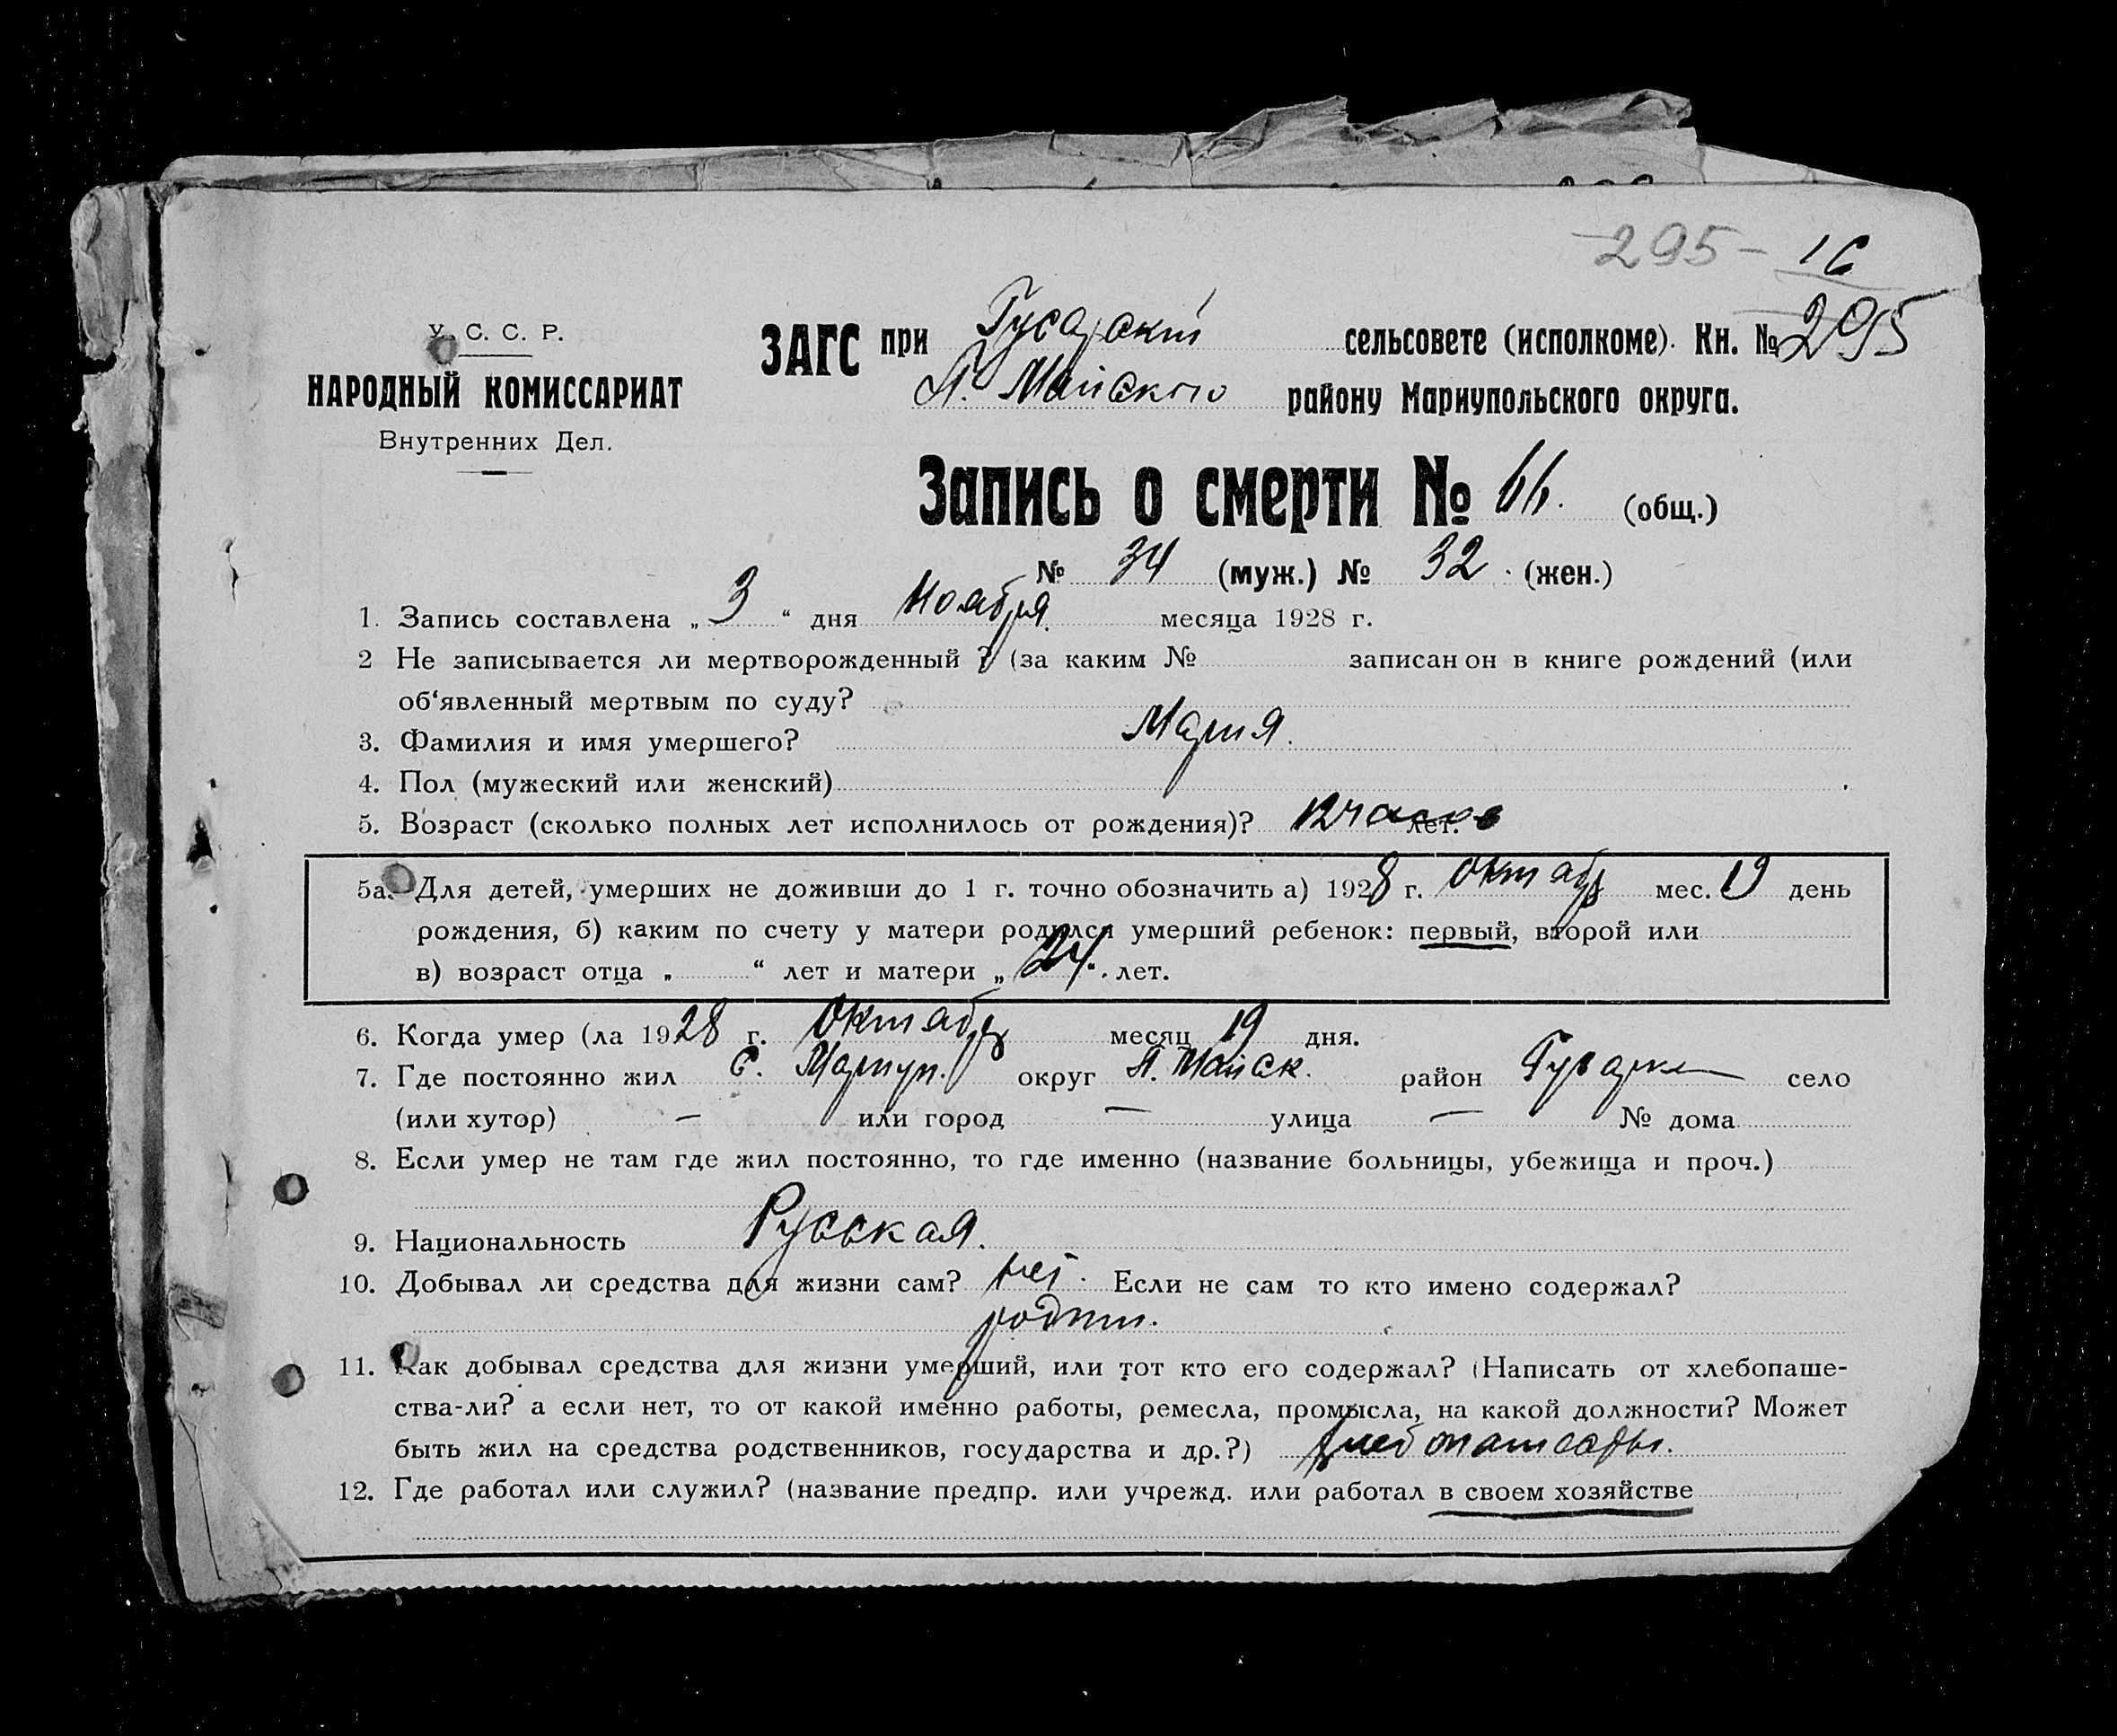 -295- 16
У. С. С. Р.
НАРОДНЫЙ КОМИССАРИАТ
Внутренних Дел.
ЗАГС при Гусарский сельсовете (исполкоме). Кн. № 295
П. Майского району Мариупольского округа.
Запись о смерти № 66. (общ.)
№ 34 (муж.) № 32 (жен.)
1. Запись составлена „ 3 “ дня Ноября месяца 1928 г.
2 Не записывается ли мертворожденный ? (за каким № записан он в книге рождений (или
об‘явленный мертвым по суду?
3. Фамилия и имя умершего? Мария.
4. Пол (мужеский или женский)
5. Возраст (сколько полных лет исполнилось от рождения)? 12 часов лет.
5а. Для детей, умерших не доживши до 1 г. точно обозначить а) 1928 г. Октябр мес. 19 день
рождения, б) каким по счету у матери родился умерший ребенок: первый, второй или
в) возраст отца „ “ лет и матери „ 24. лет.
6. Когда умер (ла 1928 г. Октябр месяц 19 дня.
7. Где постоянно жил С. Мариуп. округ П. Майск. район село
(или хутор) — или город — улица — № дома
8. Если умер не там где жил постоянно, то где именно (название больницы, убежища и проч.)
9. Национальность Русская.
10. Добывал ли средства для жизни сам? нет. Если не сам то кто имено содержал?
родит.
11. Как добывал средства для жизни умерший, или тот кто его содержал? (Написать от хлебопаше-
ства-ли? а если нет, то от какой именно работы, ремесла, промысла, на какой должности? Может
быть жил на средства родственников, государства и др.?)
12. Где работал или служил? (название предпр. или учрежд. или работал в своем хозяйстве